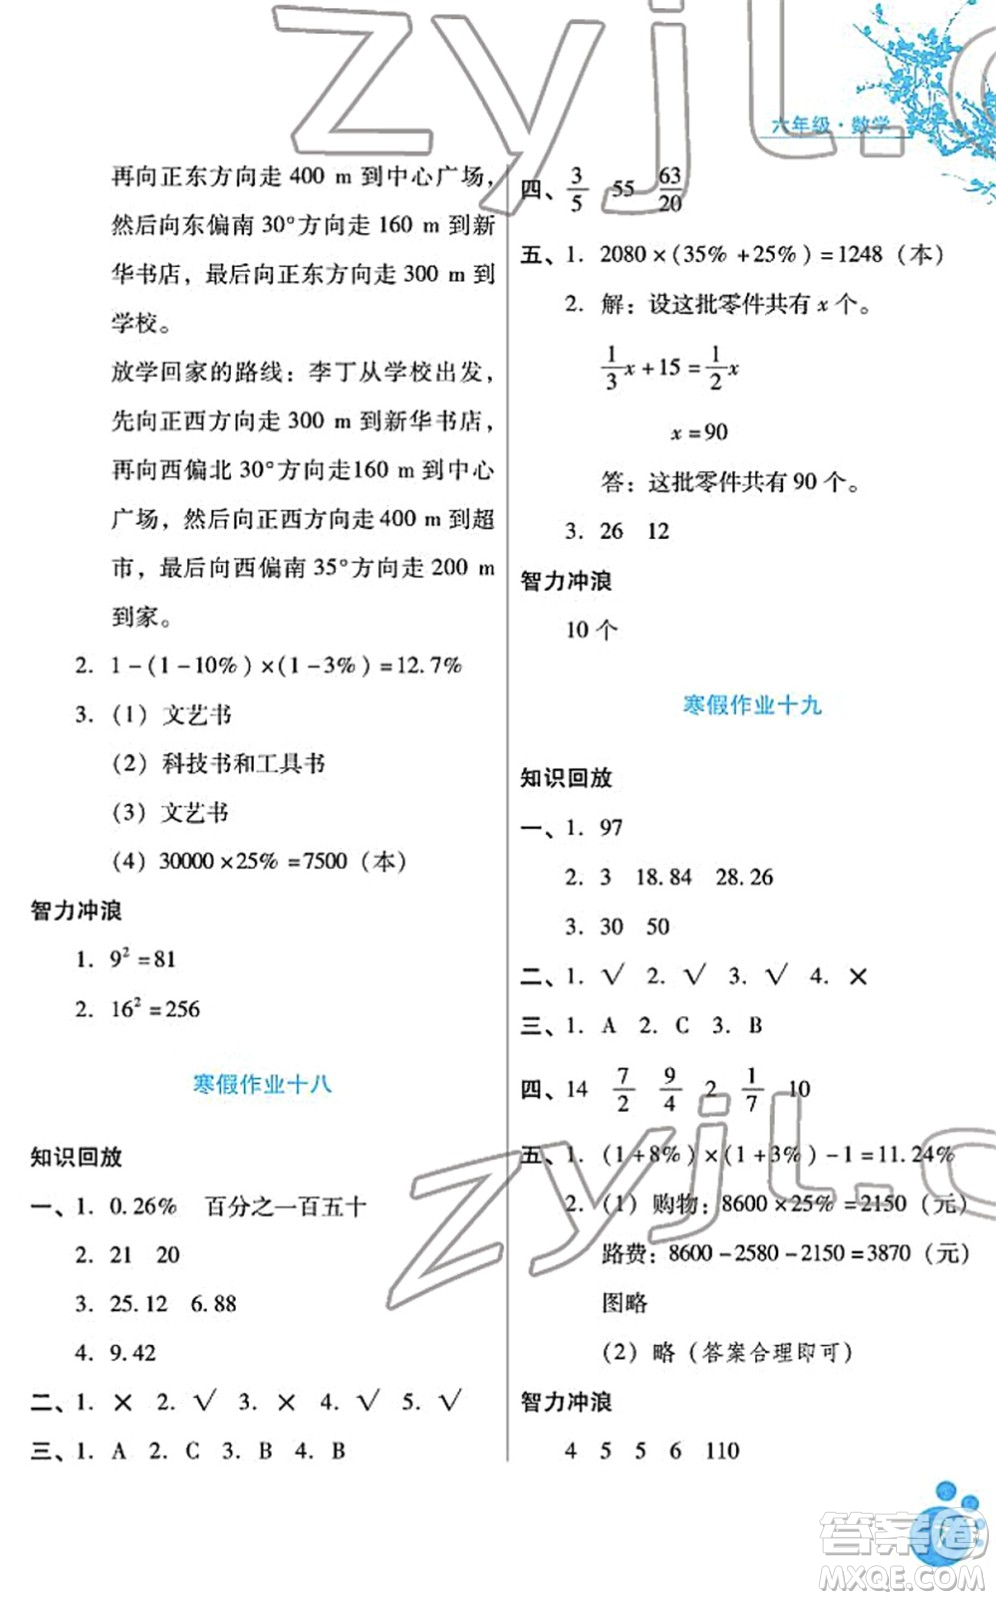 六年级·数学
再向正东方向走 400 m 到中心广场,
然后向东偏南 30°方向走 160 m 到新
华书店，最后向正东方向走 300 m 到
学校。
放学回家的路线：李丁从学校出发，
先向正西方向走 300 m 到新华书店，
再向西偏北 30°方向走160 m 到中心
广场，然后向正西方向走 400 m 到超
市，最后向西偏南 35°方向走 200 m
到家。
2. 1-(1-10%)×(1-3%)=12.7%
3. (1) 文艺书
(2) 科技书和工具书
(3) 文艺书
(4) 30000×25%=7500（本）
智力冲浪
1. 9²=81
2. 16²=256
寒假作业十八
知识回放
一、1. 0.26% 百分之一百五十
2. 21 20
3. 25.12 6.88
4. 9.42
二、1. × 2. √ 3. × 4. √ 5. √
三、1. A 2. C 3. B 4. B
四、3/5 55 63/20
五、1. 2080×(35%+25%)=1248（本）
2. 解：设这批零件共有 x 个。
1/3x+15=1/2x
x=90
答：这批零件共有 90 个。
3. 26 12
智力冲浪
10 个
寒假作业十九
知识回放
一、1. 97
2. 3 18.84 28.26
3. 30 50
二、1. √ 2. √ 3. √ 4. ×
三、1. A 2. C 3. B
四、14 7/2 9/4 2 1/7 10
五、1. (1+8%)×(1+3%)-1=11.24%
2. (1) 购物：8600×25%=2150（元）
路费：8600-2580-2150=3870（元）
图略
(2) 略（答案合理即可）
智力冲浪
4 5 5 6 110
zyjl.c
zyjl.c
答案圈
MXQE.COM